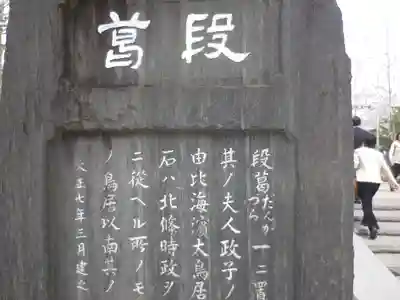 段葛
段葛たんかつら一ニ置
其ノ夫人政子ノ
由比海濱大鳥居
石ハ北條時政ヲ
ニ從ヘル所ノモ
ノ鳥居以南其ノ
大正七年三月建之